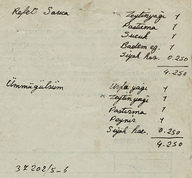 Refet Sarıca
Zeytinyağı 1
Pastırma 1
Sucuk 1
Badem eg. 1
Siyah hav. 0.250
4.250
Ümmügülsüm
Urfa yağı 1
Zeytin yağı 1
Pastırma 1
Peynir 1
Siyah hav. 0.250
4.250
37202/5-6